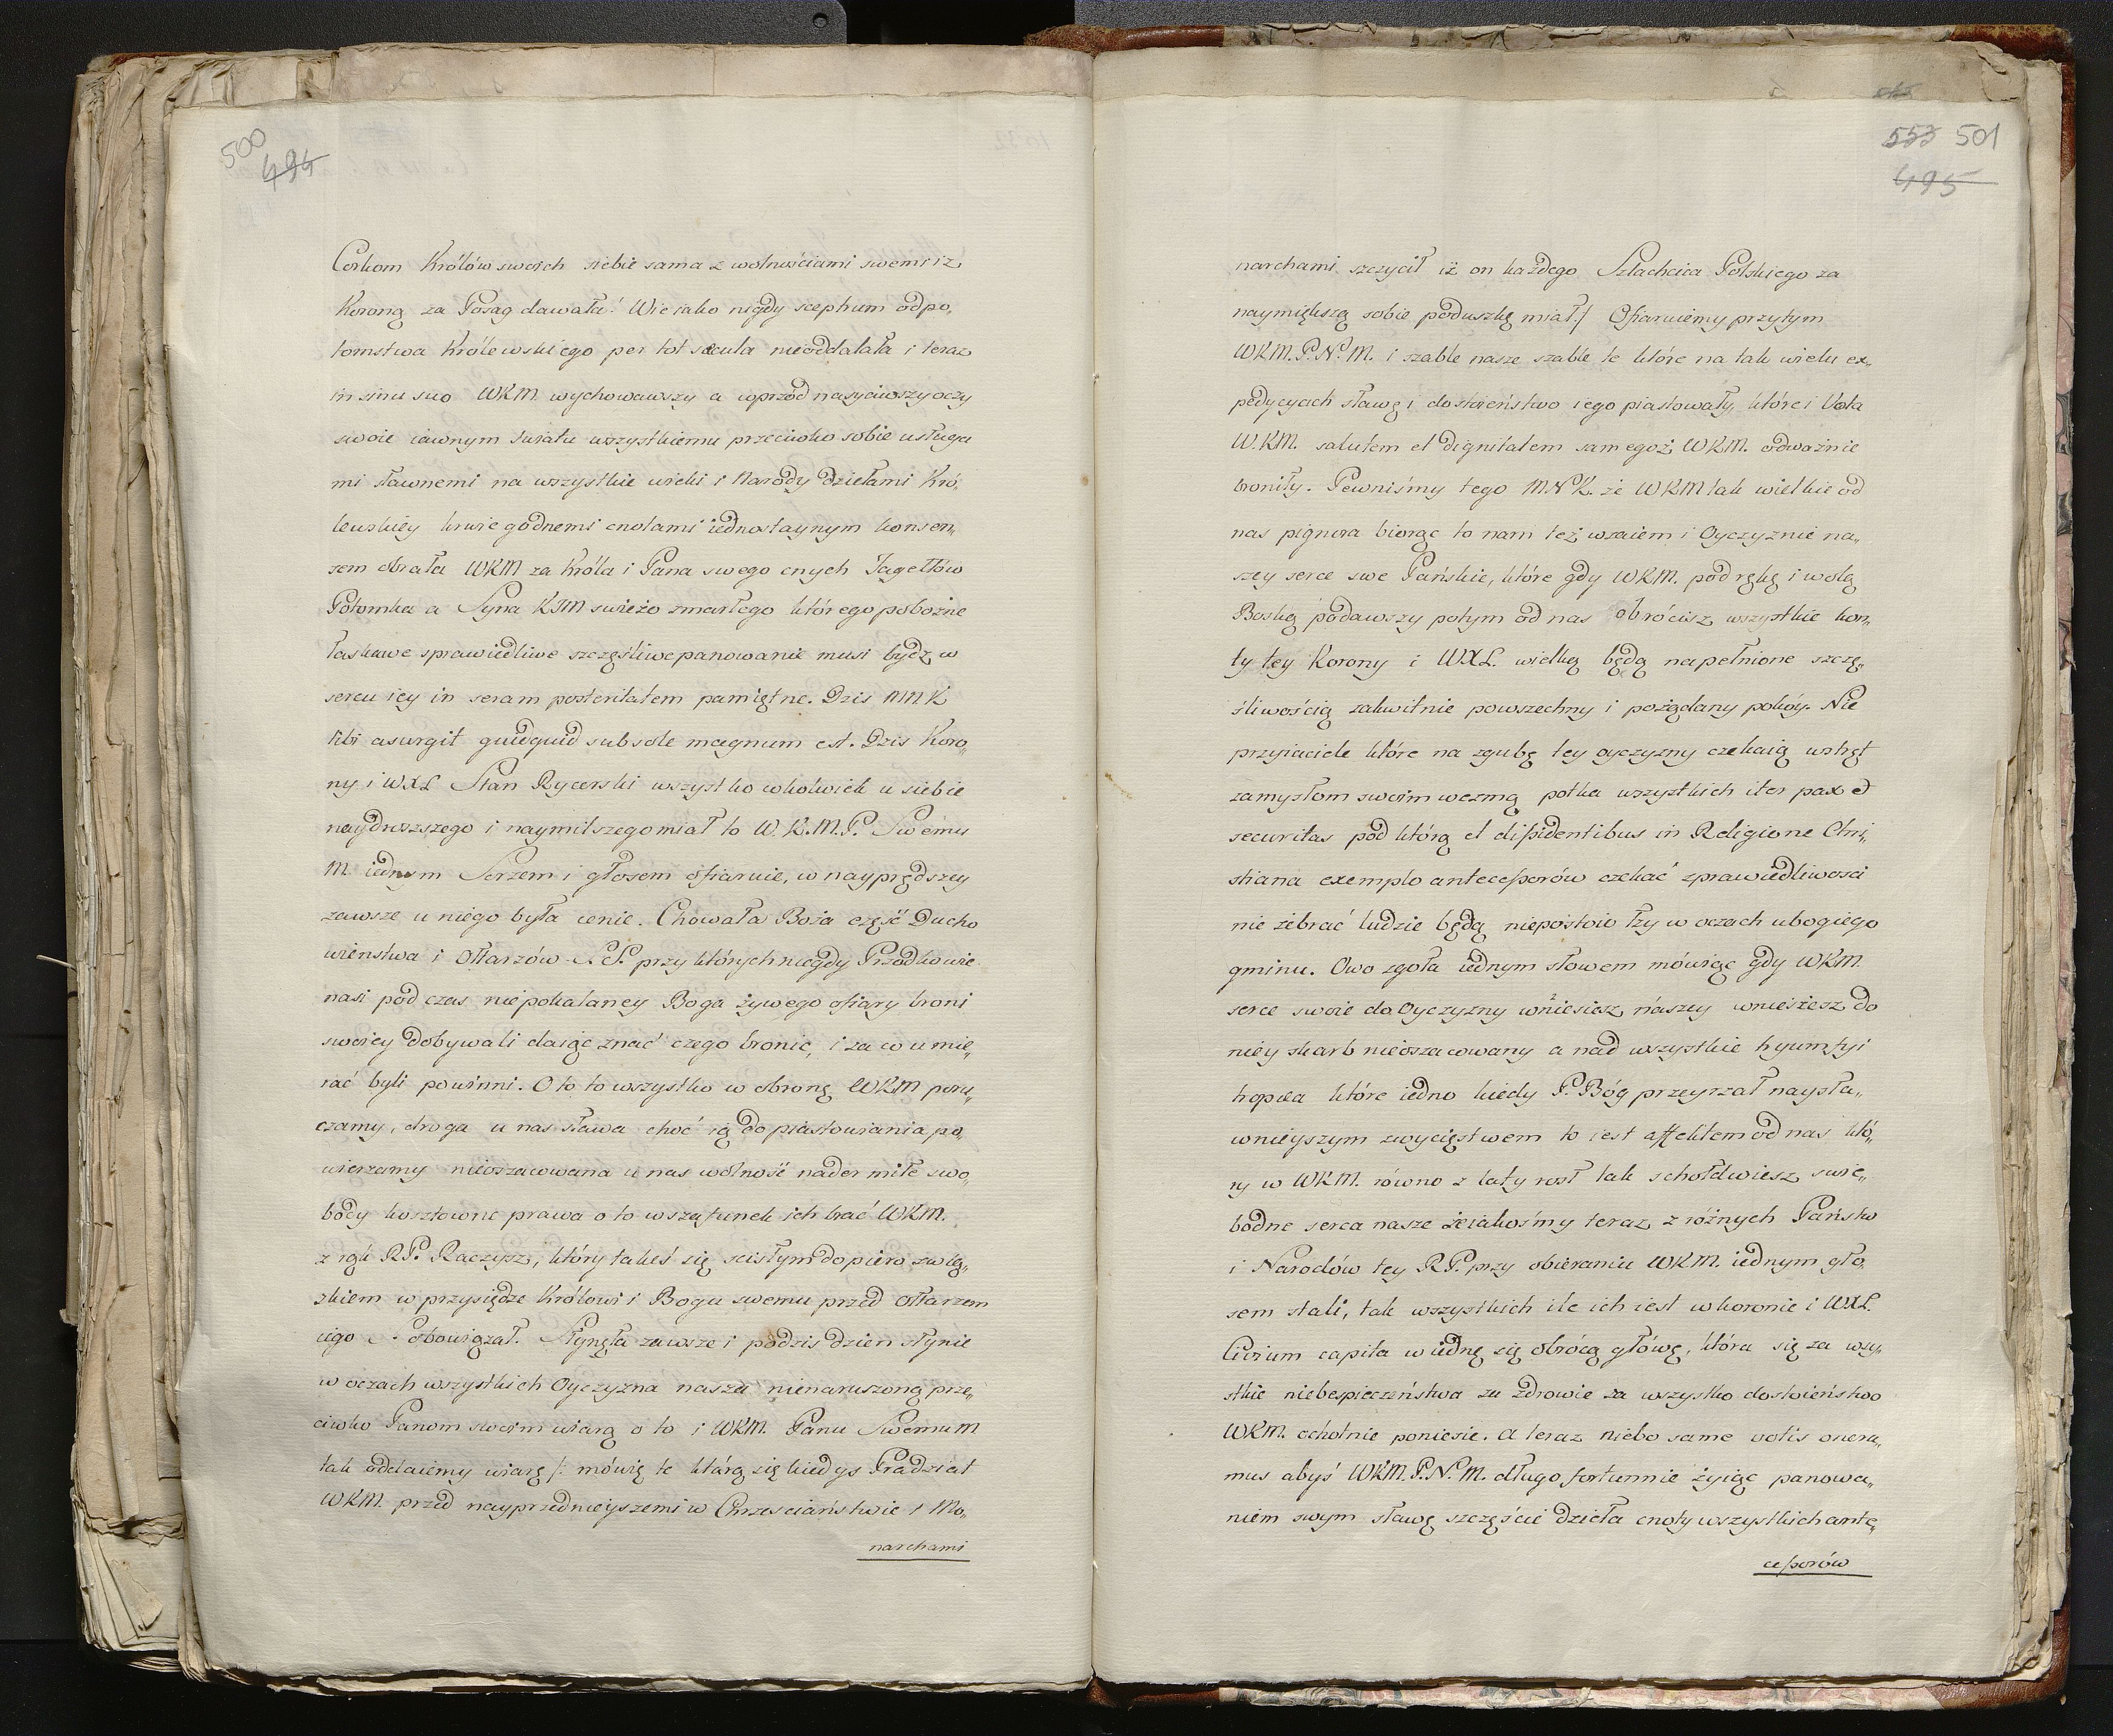 500
494
Corkom Królów swoich siebie sama z wolnościami swemi i z
Koroną za Posag dawała! Wie iako nigdy sceptrum odpo„
tomstwa Królewskiego per tot sæcula nieoddalała i teraz
in sinu suo WKM. wychowawszy a wprzód nasyciwszy oczy
swoie iawnym światu wszystkiemu przeciwko sobie usługa
mi sławnemi na wszystkie wieki i Narody dziełami Kró„
lewskiey krwie godnemi cnotami iednostaynym konsen„
sem obrała WKM za Króla i Pana swego cnych Jagełłów
Potomka a Syna KJM swieżo zmarłego którego pobożne
łaskawe sprawiedliwe szczęśliwe panowanie musi bydz w
sercu iey in seram posteritatem pamiętne. Dzis MNK
tibi asurgit quidquid sub sole magnum est. Dzis Koro„
ny i WXL Stan Rycerski wszystko cokolwiek u siebie
naydroższego i naymilszego miał to W.K.M.P. Swemu
M. iednym Sercem i głosem ofiaruie, w nayprędszey
zawsze u niego była cenie. Chowała Boża cześć Ducho
wieństwa i Ołtarzów S. S. przy których niegdy Przodkowie
nasi pod czas niepokalaney Boga żywego ofiary broni
swoiey dobywali daiąc znać czego bronic, i za co umie„
rać byli powinni. O to to wszystko w obronę WKM poru„
czamy, droga u nas sława choć ią do piastowania po„
wierzamy nieoszacowana u nas wolność nader miłe swo„
body kosztowne prawa o to w szafunek ich brać WKM.
z rąk RP. Raczysz, który takeś się scisłym dopiero zwią„
zkiem w przysiędze Królowi i Bogu swemu przed Ołtarzem
iego S. obowiązał. Słynęła zawsze i podzis dzien słynie
w oczach wszystkich Oyczyzna nasza nienaruszoną prze„
ciwko Panom swoim wiarą o to i WKM. Panu Swemu M
tak oddaiemy wiarę /: mówię te którą się kiedys Pradziad
WKM. przed nayprzednieyszemi w Chrzesciaństwie i Mo„
narchami
553 501
495
narchami szczycił iż on każdego Szlachcica Polskiego za
naymiększą sobie poduszkę miał :/ Ofiaruiemy przytym
WKM. P. N. M. i szable nasze szable te które na tak wielu ex„
pedycyach sławę i dostoieństwo iego piastowały, które i Vota
W.KM. salutem et dignitatem samegoż WKM. odważnie
broniły. Pewniśmy tego MNK. że WKM tak wielkie od
nas pignora biorąc to nam też wzaiem i Oyczyznie na„
szey serce swe Pańskie, które gdy WKM. pod rękę i wolą
Boską podawszy potym od nas obrócisz wszystkie kon„
ty tey Korony i WXL. wielką będą napełnione szczę„
śliwością zakwitnie powszechny i pożądany pokóy. Nie
przyiaciele które na zgubę tey oyczyzny czekaią wstręt
zamysłom swoim wezmą potka wszystkich iter pax et
securitas pod którą et dissidentibus in Religione Chri„
stiana exemplo antecessorów czekać sprawiedliwosci
nie żebrać ludzie będą niepostoio łzy w oczach ubogiego
gminu. Owo zgoła iednym słowem mówiąc gdy WKM.
serce swoie do Oyczyzny wniesiesz naszey wniesiesz do
niey skarb nieoszacowany a nad wszystkie tryumfy i
tropæa które iedno kiedy P. Bóg przeyrzał naysła„
wnieyszym zwycięstwem to iest affektem od nas któ„
ry w WKM. równo z laty rosł tak zchołdwiesz swie„
bodne serca nasze że iakośmy teraz z różnych Państw
i Narodów tey RP. przy obieraniu WKM. iednym gło
sem stali, tak wszystkich ile ich iest w koronie i WXL.
Civium capita w iednę się obrócą głowę, która się za wszy„
stkie niebespieczeństwa za zdrowie za wszystko dostoieństwo
WKM. ochotnie poniesie. A teraz niebo same votis onera„
mus abyś WKM. P. N. M. długo fortunnie żyiąc panowa„
niem swym sławę szczęście dzieła cnoty wszystkich ante„
cessorów